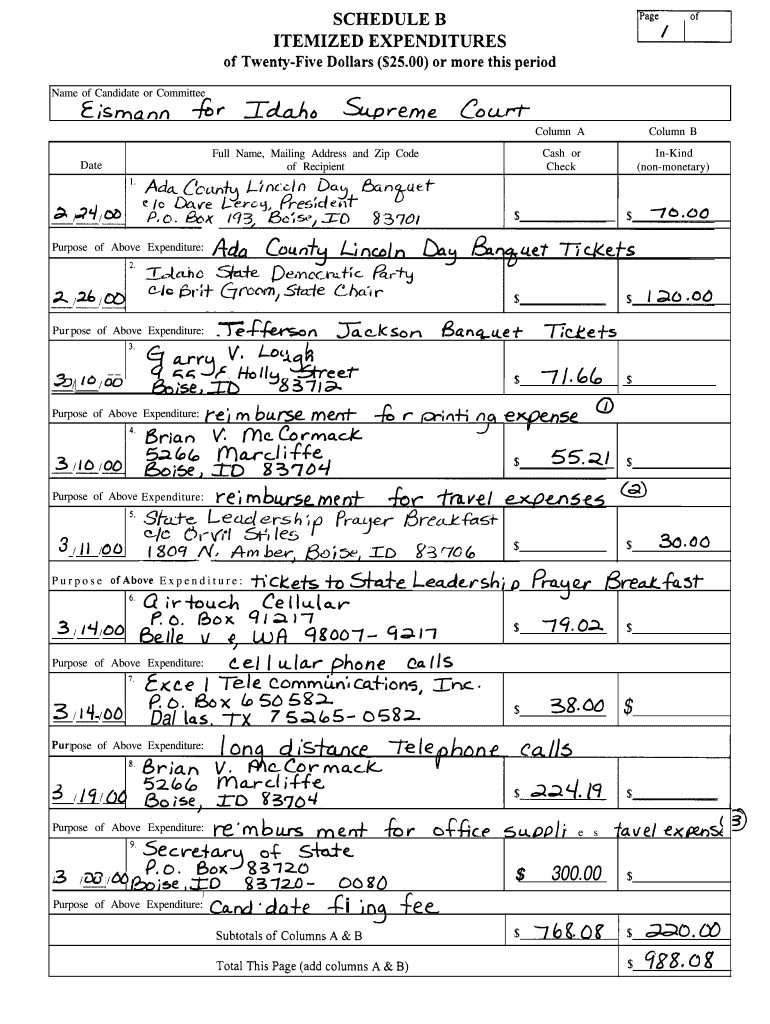 SCHEDULE B
ITEMIZED EXPENDITURES
of Twenty-Five Dollars ($25.00) or more this period
Page of
1
Name of Candidate or Committee
Eismann for Idaho Supreme Court
Column A Column B
Date Full Name, Mailing Address and Zip Code of Recipient Cash or Check In-Kind (non-monetary)
1. Ada County Lincoln Day Banquet
c/o Dave Leroy, President
2/24/00 P.O. Box 193, Boise, ID 83701 $ $ 70.00
Purpose of Above Expenditure: Ada County Lincoln Day Banquet Tickets
2. Idaho State Democratic Party
2/26/00 c/o Brit Groom, State Chair $ $ 120.00
Purpose of Above Expenditure: Jefferson Jackson Banquet Tickets
3. Garry V. Lough
Holly Street
10/00 Boise, ID 83712 $ 71.66 $
Purpose of Above Expenditure: reimbursement for printing expense (1)
4. Brian V. McCormack
5266 Marcliffe
3/10/00 Boise, ID 83704 $ 55.21 $
Purpose of Above Expenditure: reimbursement for travel expenses (2)
5. State Leadership Prayer Breakfast
c/o Orvil Stiles
3/11/00 1809 N. Amber, Boise, ID 83706 $ $ 30.00
Purpose of Above Expenditure: tickets to State Leadership Prayer Breakfast
6. Airtouch Cellular
P.O. Box 91217
3/14/00 Belle v e, WA 98007-9217 $ 79.02 $
Purpose of Above Expenditure: cellular phone calls
7. Excel Telecommunications, Inc.
P.O. Box 650582
3/14/00 Dallas, TX 75265-0582 $ 38.00 $
Purpose of Above Expenditure: long distance Telephone calls
8. Brian V. McCormack
5266 Marcliffe
3/19/00 Boise, ID 83704 $ 224.19 $
Purpose of Above Expenditure: reimburs ment for office supplies tavel expens (3)
9. Secretary of State
P.O. Box 83720
3 /00 Boise, ID 83720-0080 $ 300.00 $
Purpose of Above Expenditure: Candidate filing fee
Subtotals of Columns A & B $ 768.08 $ 220.00
Total This Page (add columns A & B) $ 988.08